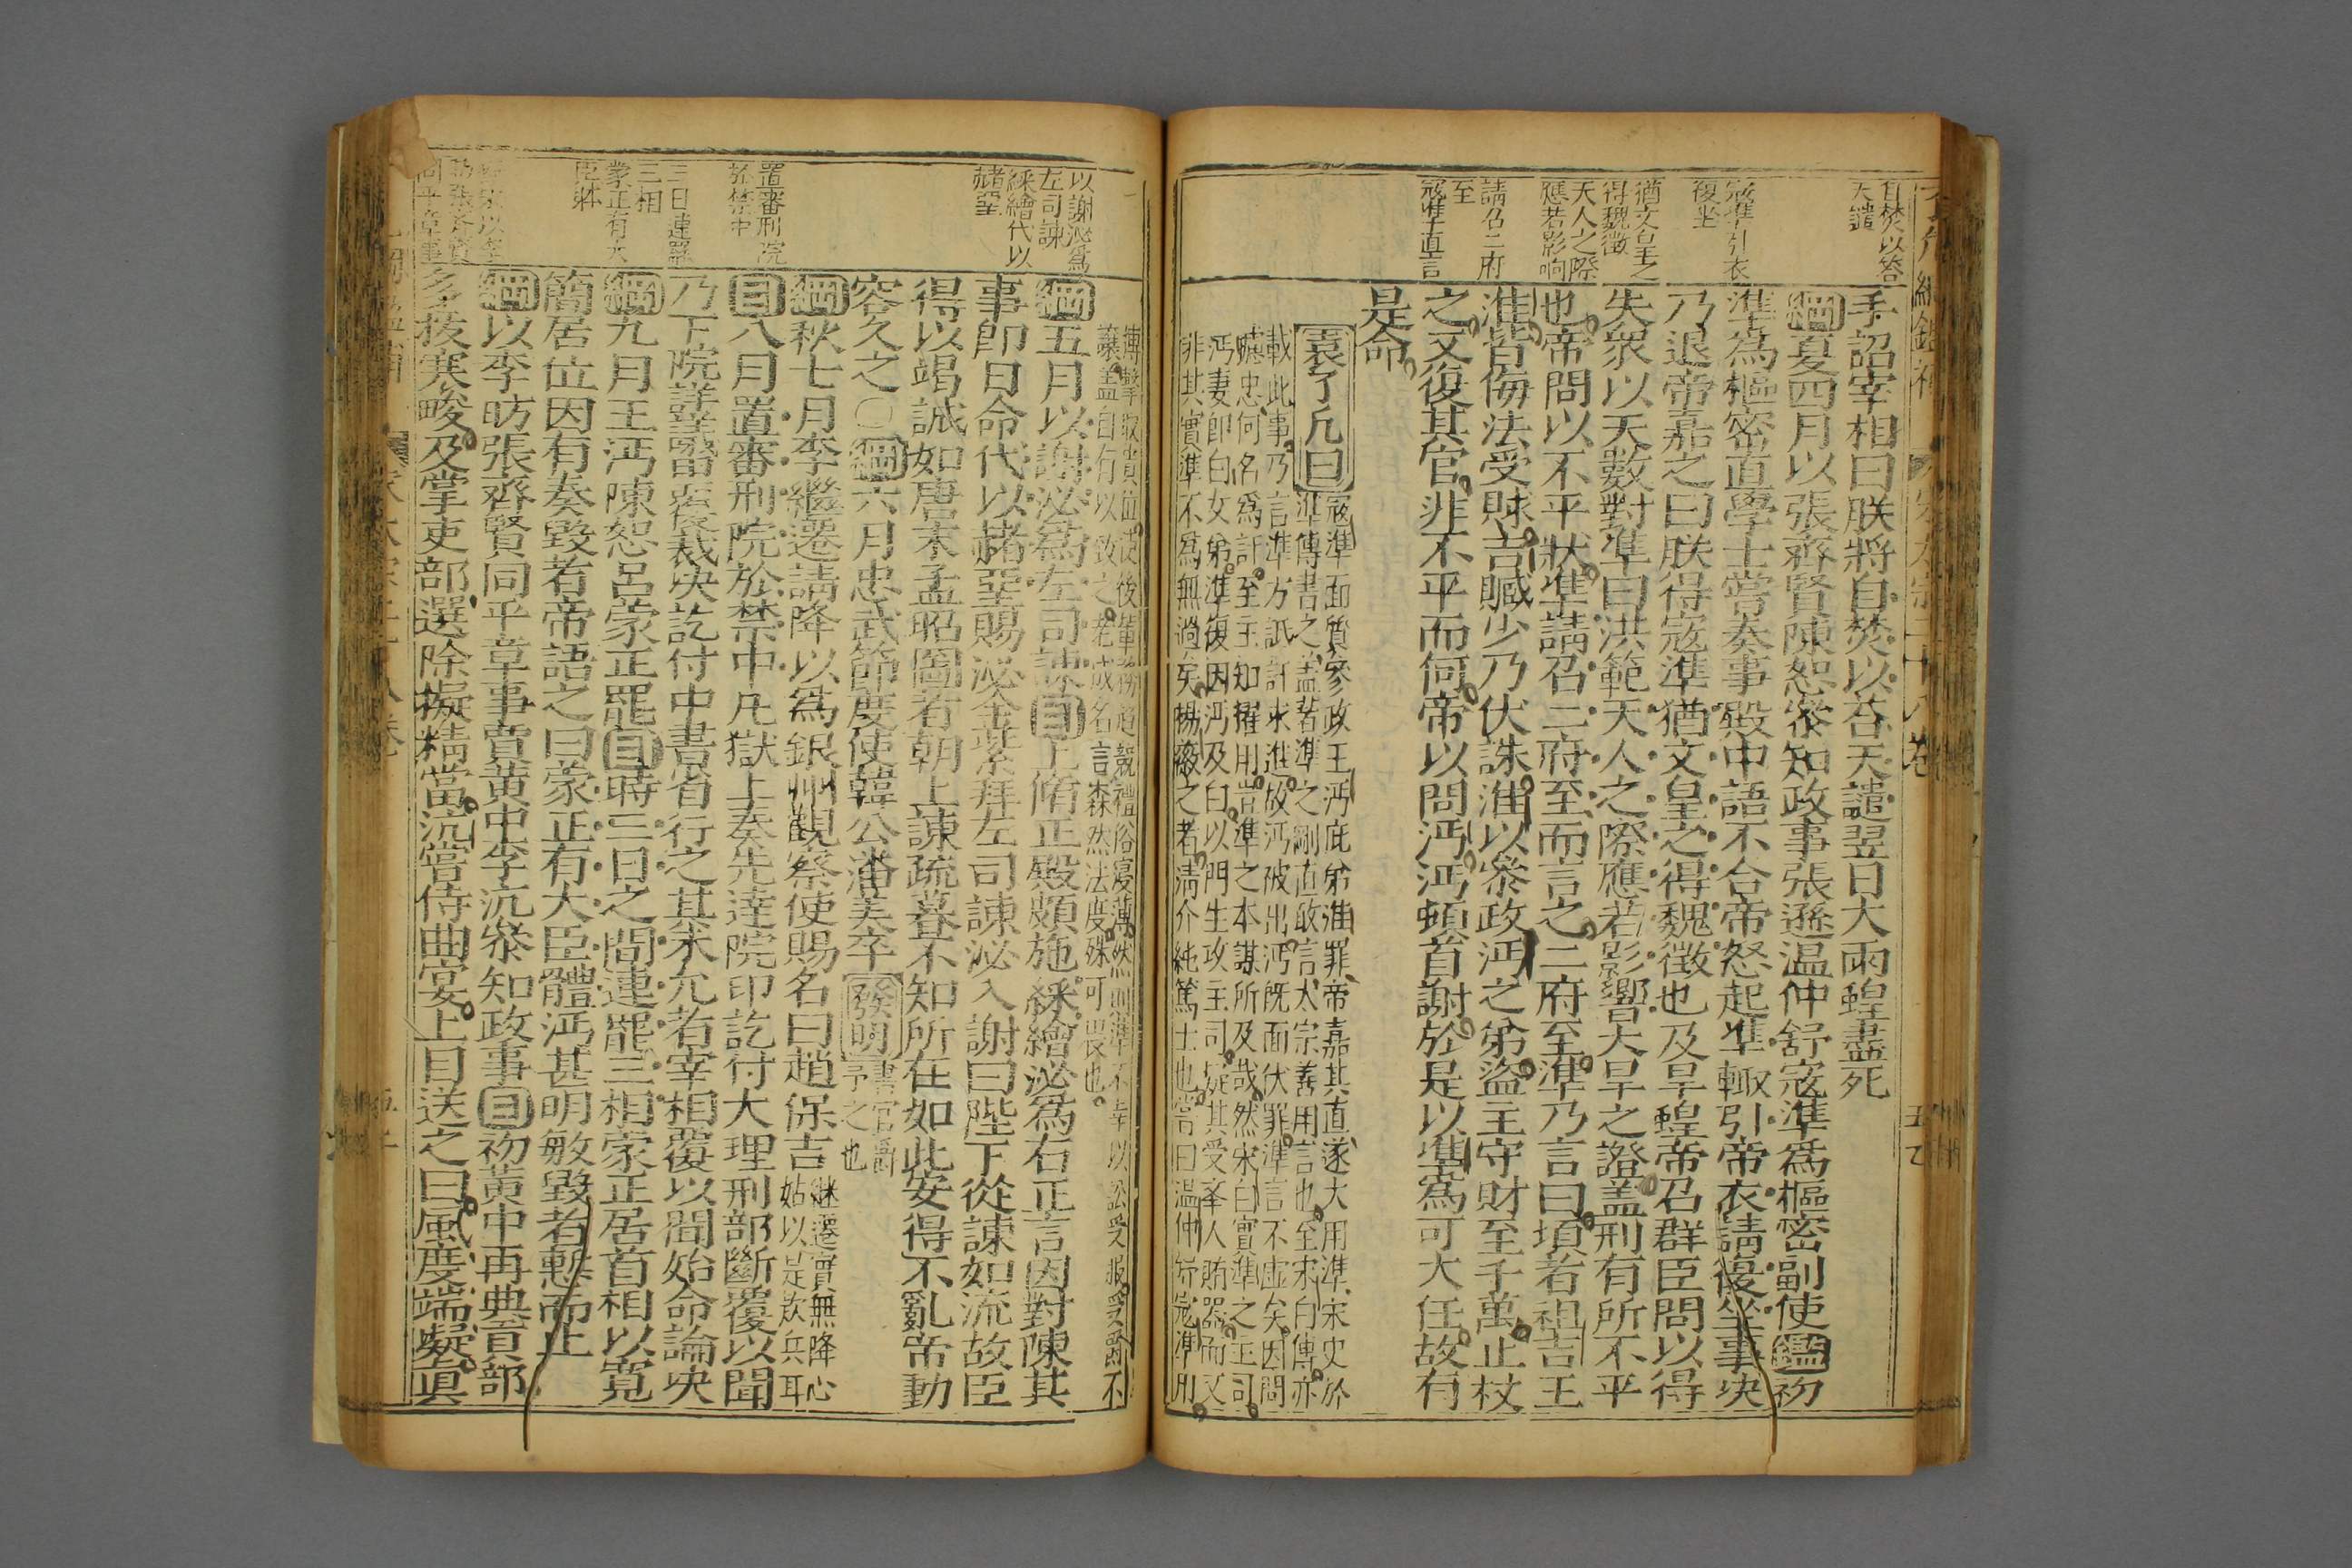 自焚以答
天譴
寇準引衣
復坐
猶文皇之
得魏徵
天人之際
應若影响
請召二府
至
寇準直言
手詔宰相曰朕將自焚以荅天譴翌日大雨蝗盡死
綱夏四月以張齊賢陳恕叅知政事張遜温仲舒寇準爲樞密副使鑑初
準爲樞密直學士嘗奏事殿中語不合帝怒起準輙引帝衣請復坐事决
乃退帝嘉之曰朕得寇準猶文皇之得魏徵也及旱蝗帝召群臣問以得
失衆以天數對準曰洪範天人之際應若影響大旱之證盖刑有所不平
也帝問以不平狀準請召二府至而言之二府至準乃言曰頃者祖吉王
淮皆侮法受賕吉贓少乃伏誅淮以叅政沔之弟盜主守財至千萬止杖
之又復其官非不平而何帝以問沔沔頓首謝於是以準爲可大任故有
是命
袁了凡曰
寇準面質參政王沔庇弟淮罪帝嘉其直遂大用準宋史於
準傳書之盖著準之剛直敢言太宗善用言也至宋白傳亦
載此事乃言準方詆訐求進故沔破出沔旣面伏罪準言不虛矣因問
蠙忠何名爲訐至王知擢用豈準之本謀所及哉然宋白實準之主司
沔妻即白女弟準復因沔及白以門生攻主司疑其受夆人賂器而又
非其實準不爲無過矣楊徽之者淸介純篤士也嘗曰温仲舒寇準用
以謝泌爲
左司諫
綵繪代以
赭堊
置審刑院
於禁中
三日連罷
三相
蒙正有大
臣躰
同平章事
搏擊取貴位使後輩務趨競禮俗寖薄然則準不幸以訟受服受爵不
讓盖自有以致之老成名言森然法度殊可畏也
綱五月以謝泌爲左司諫目上脩正殿頗施綵繪泌爲右正言因對陳其
事卽日命代以赭堊賜泌金紫拜左司諫泌入謝曰陛下從諫如流故臣
得以竭誠如唐末孟昭圖者朝上諫疏暮不知所在如此安得不亂帝動
容久之〇綱六月忠武節度使韓公潘美卒發明書官爵予之也
綱秋七月李繼遷請降以爲銀州觀察使賜名曰趙保吉繼遷實無降心姑以是欵兵耳
目八月置審刑院於禁中凡獄上奏先達院印訖付大理刑部斷覆以聞
乃下院詳議畱覆裁决訖付中書省行之其未允者宰相覆以聞始命論决
綱九月王沔陳恕呂蒙正罷目時三日之間連罷三相蒙正居首相以寛
簡居位因有奏毀者帝語之曰蒙正有大臣體沔甚明敏毀者慙而止
綱以李昉張齊賢同平章事賈黃中李沆叅知政事目初黃中再典貢部
多拔寒畯及掌吏部選除擬精當沆嘗侍曲宴上目送之曰風度端凝眞